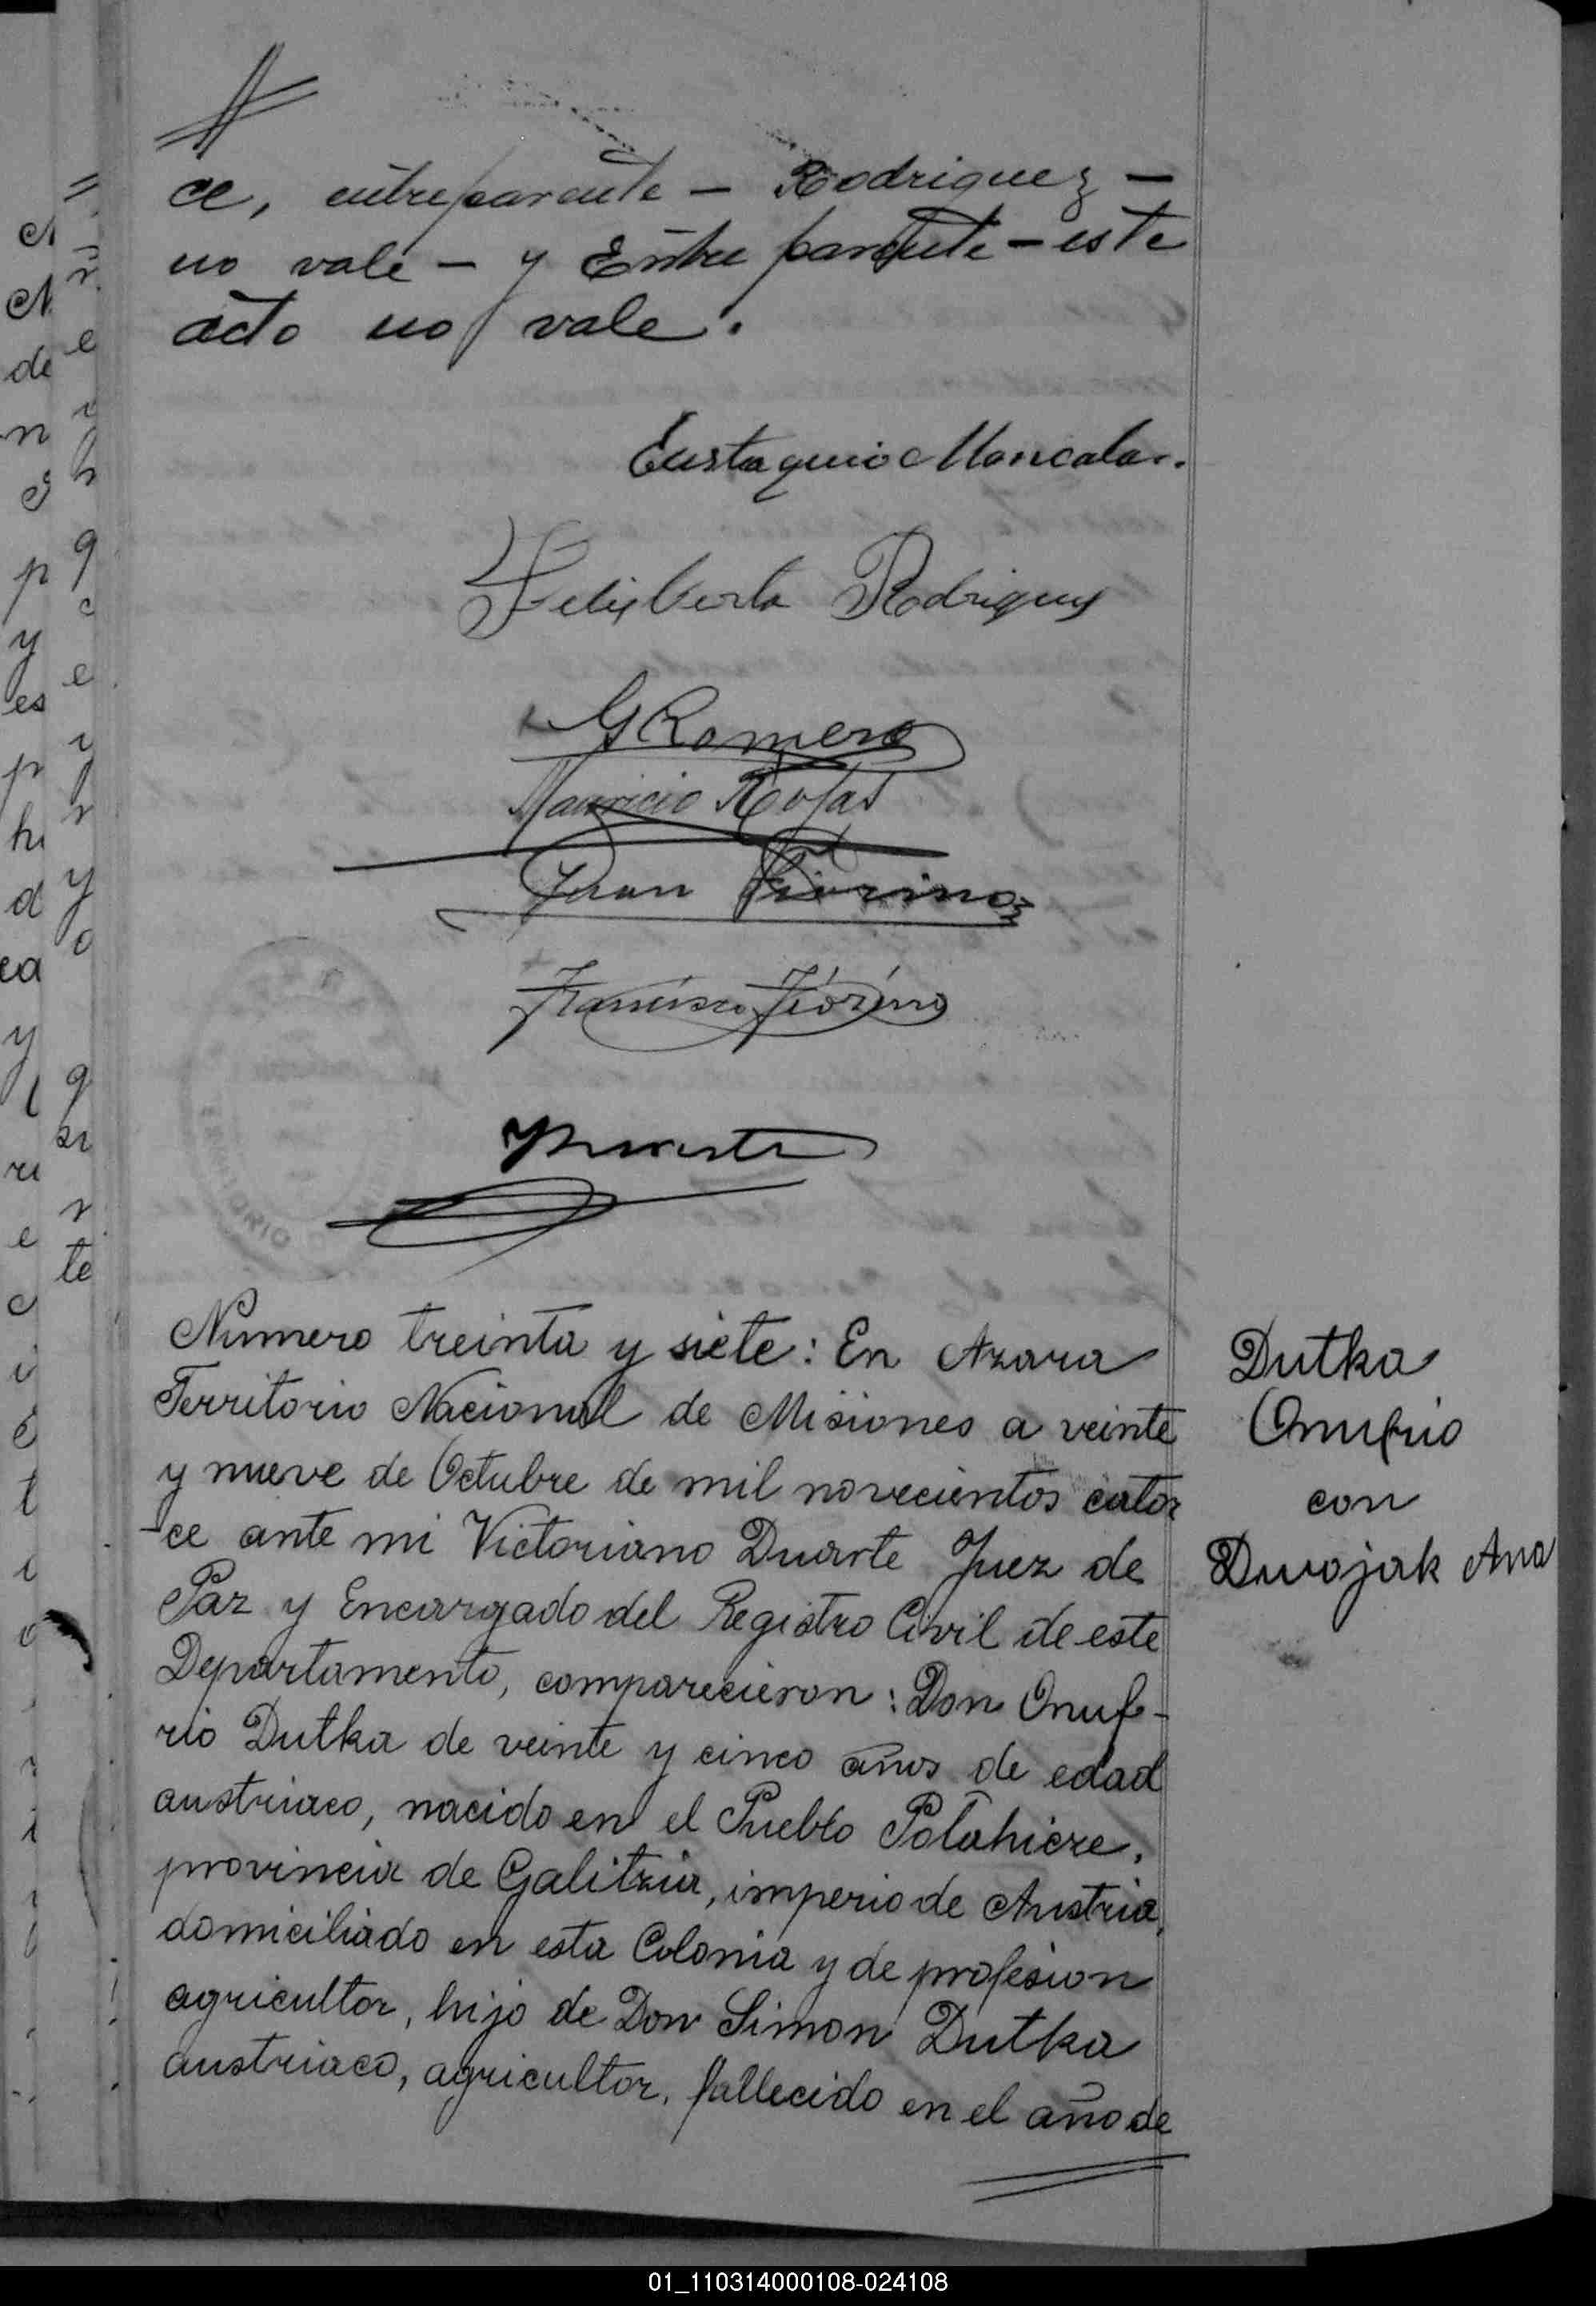 ce, entreparente - Rodriguez -
no vale - y Entre parente - este
acto no vale.
Eustaquio Moncala
Felisberto Rodrigues
G Romero
Mauricio Rojas
Juan Fiorino
Francisco Fiorino
TERRITORIO
Numero treinta y siete: En Azara
Territorio Nacional de Misiones a veinte
y nueve de Octubre de mil novecientos cator
-ce ante mi Victoriano Duarte Juez de
Paz y Encargado del Registro Civil de este
Departamento, comparecieron: Don Onuf-
rio Dutka de veinte y cinco años de edad
austriaco, nacido en el Pueblo Potahicze,
provincia de Galitzia, imperio de Austria,
domiciliado en esta Colonia y de profesion
agricultor, hijo de Don Simon Dutka
austriaco, agricultor, fallecido en el año de
Dutka
Onufrio
con
Dwojak Ana
01_110314000108-024108